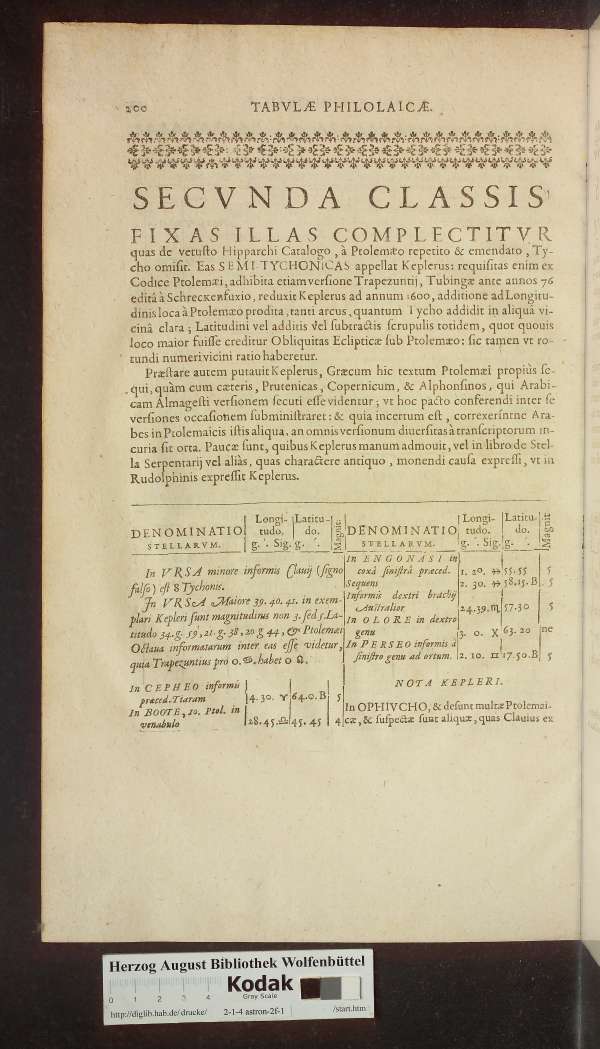 200
TABVLÆ PHILOLAICÆ.
SECVNDA CLASSIS
FIXAS ILLAS COMPLECTITVR
quas de vetusto Hipparchi Catalogo, à Ptolemæo repetito & emendato, Ty-
cho omisit. Eas SEMI-TYCHONICAS appellat Keplerus: requisitas enim ex
Codice Ptolemæi, adhibita etiam versione Trapezuntij, Tubingæ ante annos 76
edita à Schreckenfuxio, reduxit Keplerus ad annum 1600, additione ad Longitu-
dinis loca à Ptolemæo prodita, tanti arcus, quantum Tycho addidit in aliqua vi-
cinâ clara; Latitudini vel additis vel subtractis scrupulis totidem, quot quouis
loco maior fuisse creditur Obliquitas Eclipticæ sub Ptolemæo: sic tamen vt ro-
tundi numeri vicini ratio haberetur.
Præstare autem putauit Keplerus, Græcum hic textum Ptolemæi propiùs se-
qui, quàm cum cæteris, Prutenicas, Copernicum, & Alphonsinos, qui Arabi-
cam Almagesti versionem secuti esse videntur; vt hoc pacto conferendi inter se
versiones occasionem subministraret: & quia incertum est, correxerintne Ara-
bes in Ptolemaicis istis aliqua, an omnis versionum diuersitas à transcriptorum in-
curia sit orta. Paucæ sunt, quibus Keplerus manum admouit, vel in libro de Stel-
la Serpentarij vel aliàs, quas charactere antiquo, monendi causa expressi, vt in
Rudolphinis expressit Keplerus.
DENOMINATIO STELLARVM. Longi-tudo. g. '. Sig. Latitu-do. g. '. Magnit.
In VRSA minore informis Clauij (signo
falso) est 8 Tychonis.
In VRSA Maiore 39. 40. 41. in exem-
plari Kepleri sunt magnitudinis non 3. sed 5. La-
titudo 34. g. 59, 21. g. 38, 20 g 44, & Ptolemæi
Octaua informatarum inter eas esse videtur,
quia Trapezuntius pro 0. ♋. habet 0 ♌.
In CEPHEO informis
præced. Tiaram 4. 30. ♈ 64. 0. B 5
In BOOTE, 10. Ptol. in
venabulo 28. 45. ♎ 45. 45 4
DENOMINATIO STELLARVM. Longi-tudo. g. '. Sig. Latitu-do. g. '. Magnit
In ENGONASI in
coxâ sinistrâ præced. 1. 20. ♐ 55. 55 5
Sequens 2. 30. ♐ 58. 15. B 5
Informis dextri brachij
Australior 24. 39. ♏ 57. 30 5
In OLORE in dextro
genu 3. 0. ♓ 63. 20 ne
In PERSEO informis à
sinistro genu ad ortum. 2. 10. ♊ 17. 50. B 5
NOTA KEPLERI.
In OPHIVCHO, & desunt multæ Ptolemai-
cæ, & suspectæ sunt aliquæ, quas Clauius ex
Herzog August Bibliothek Wolfenbüttel
0 1 2 3 4
Kodak
Gray Scale
http://diglib.hab.de/drucke/ 2-1-4 astron-2f-1 /start.htm